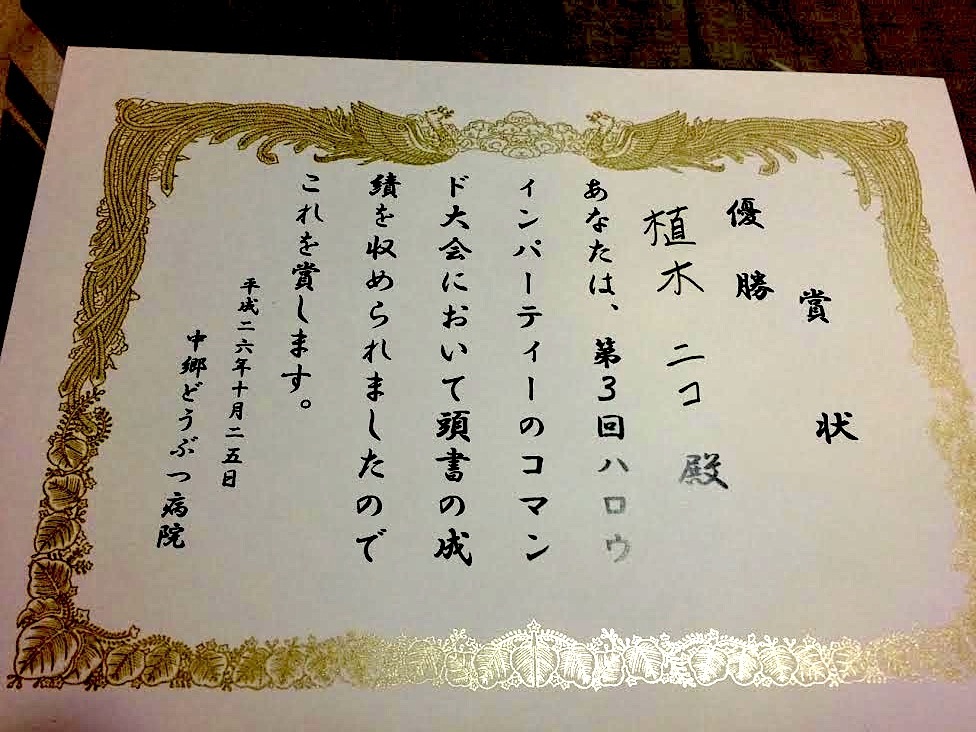 賞状
優勝
植木ニコ殿
あなたは、第3回ハロウ
ィンパーティーのコマン
ド大会において頭書の成
績を収められましたので
これを賞します。
平成二六年十月二五日
中郷どうぶつ病院